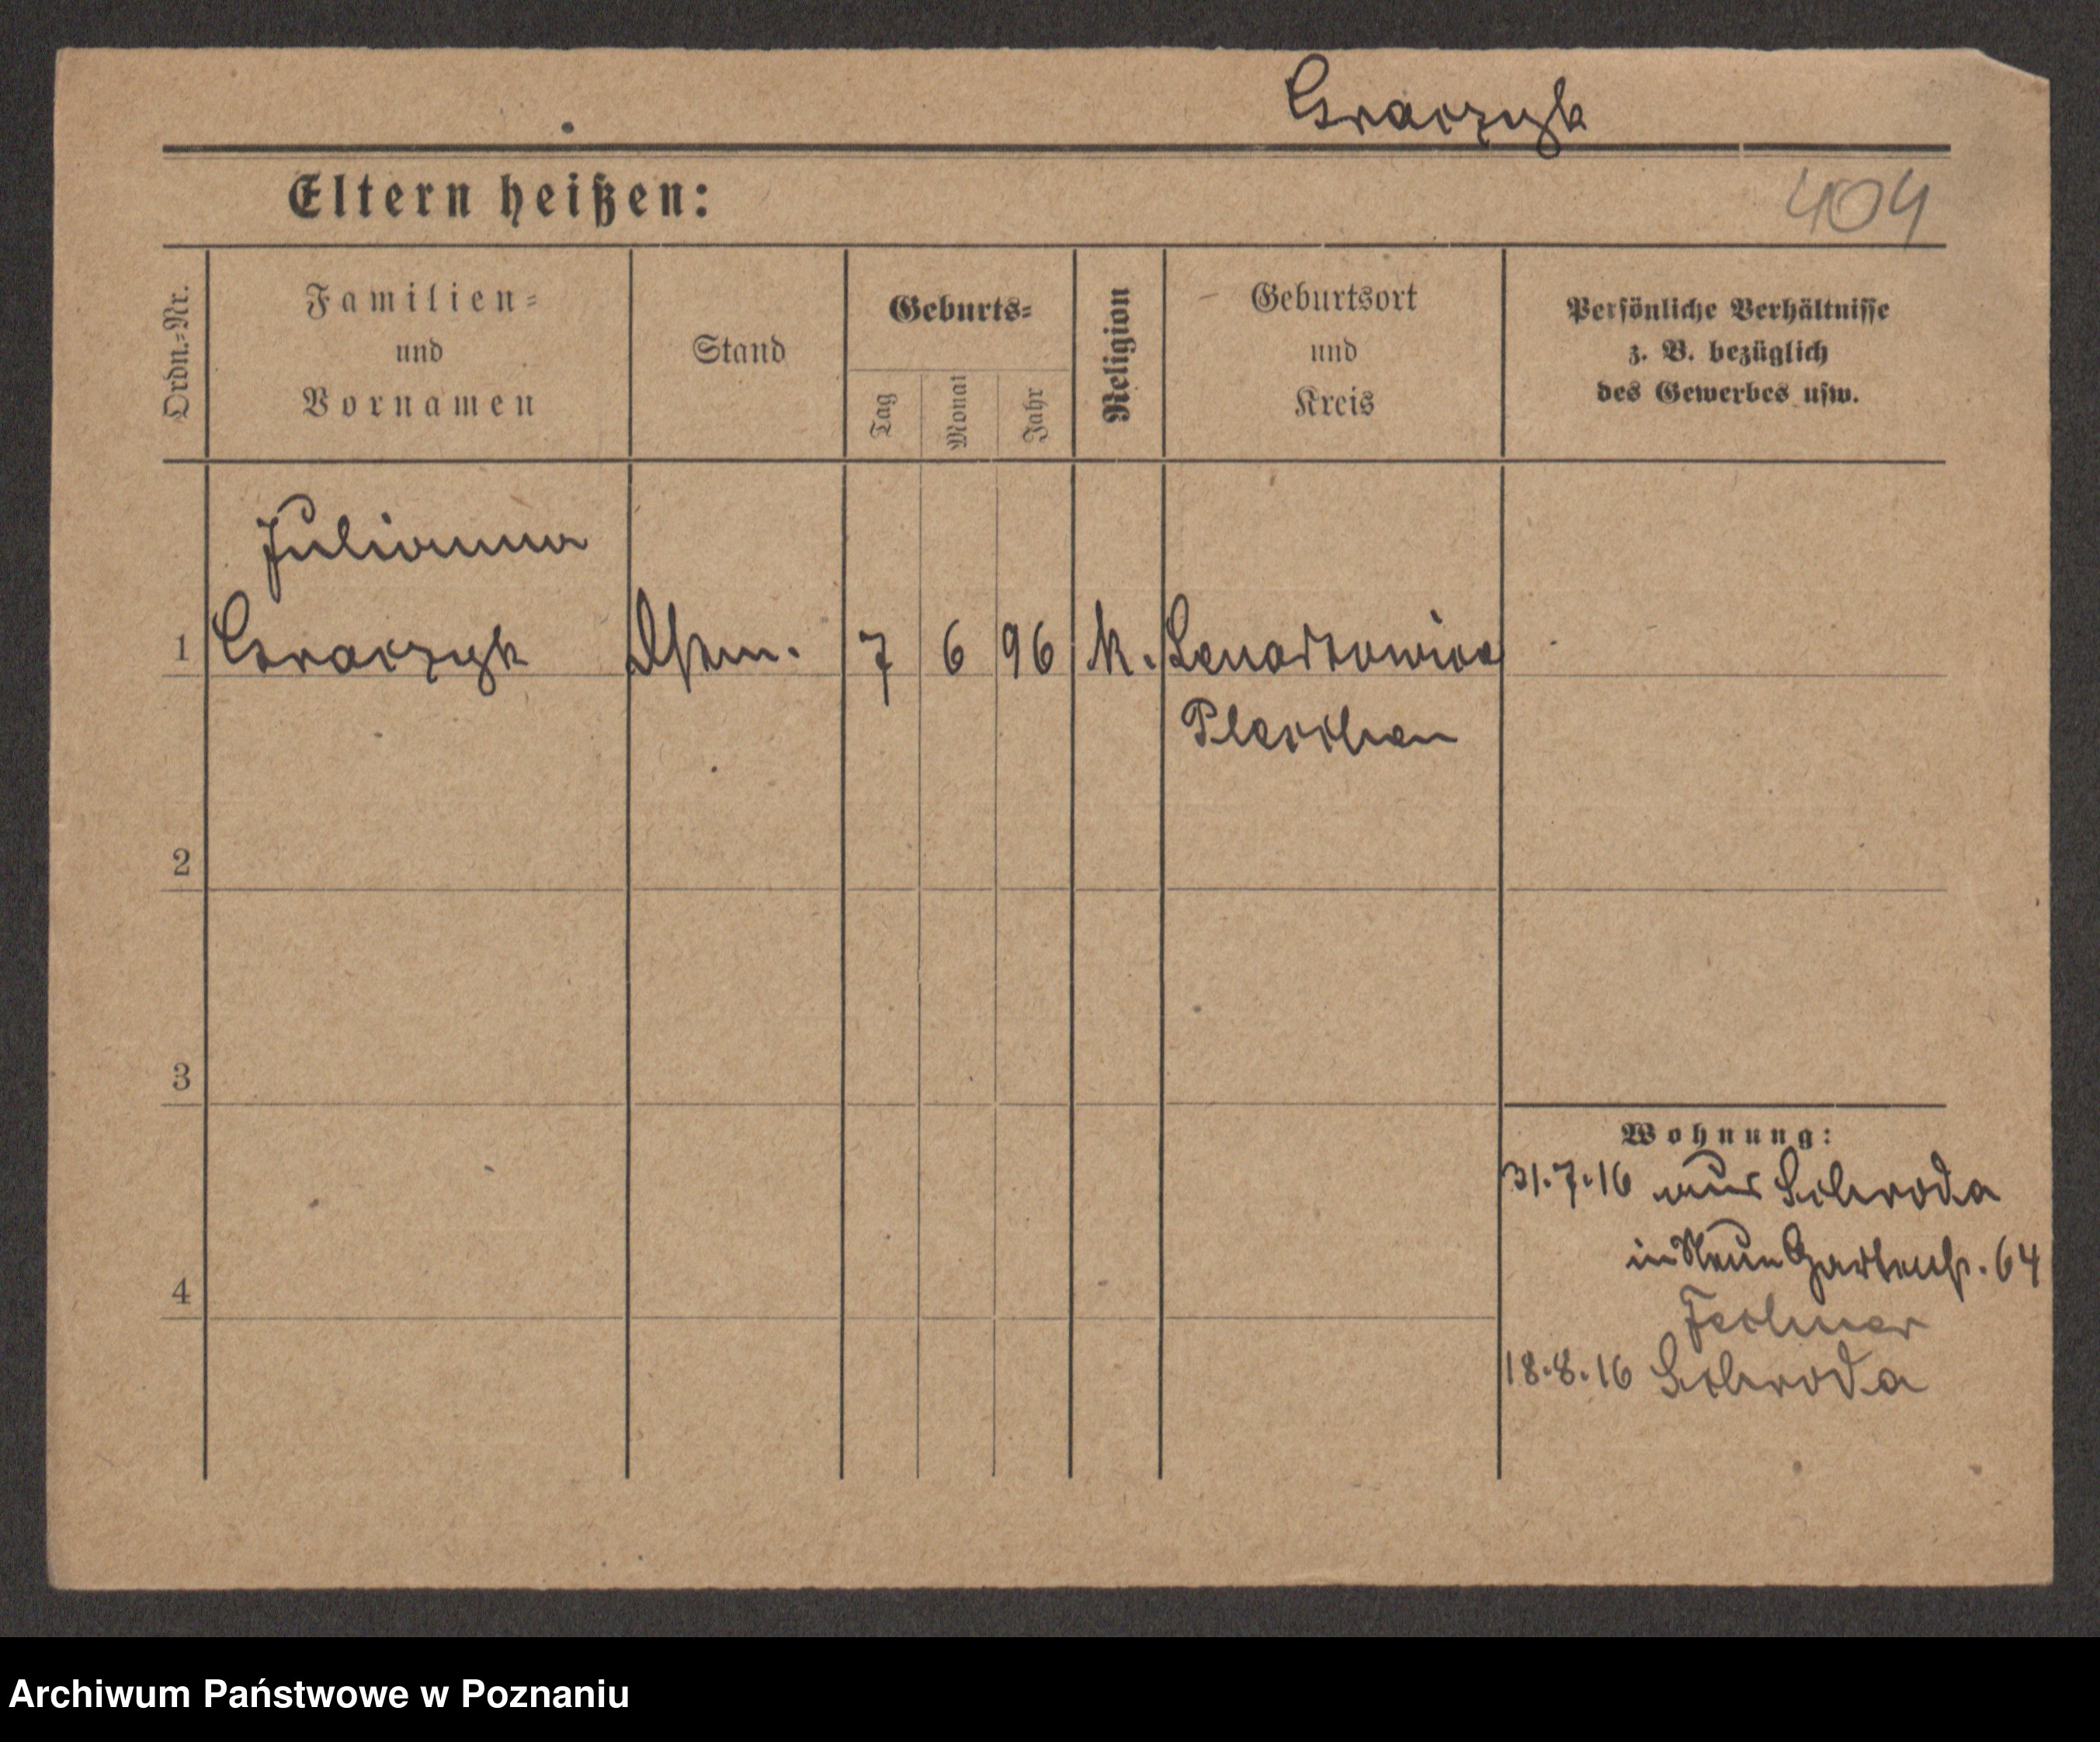 Graczyk
Eltern heißen:
404
Ordn.-Nr.
Familien=
und
Vornamen
Stand
Geburts=
Tag
Monat
Jahr
Religion
Geburtsort
und
Kreis
Persönliche Verhältnisse
z. B. bezüglich
des Gewerbes usw.
Julianna
1 Graczyk 7 6 96 k. Lenartowice
Pleschen
2
3
4
Wohnung:
31.7.16 aus Schroda
in Neue Gartenstr. 64
Fechner
18.8.16 Schroda
Archiwum Państwowe w Poznaniu